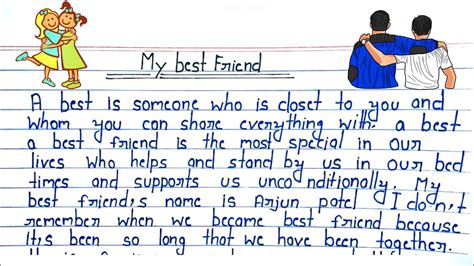 My best Friend
A best is someone who is closet to you and
whom you can share everything with. a best
a best friend is the most special in our
lives who helps and stand by us in our bed
times and supports us unconditionally. My
best friend,s name is Arjun patel I do,n,t
remember when we became best friend because
It,s been so long that we have been together.